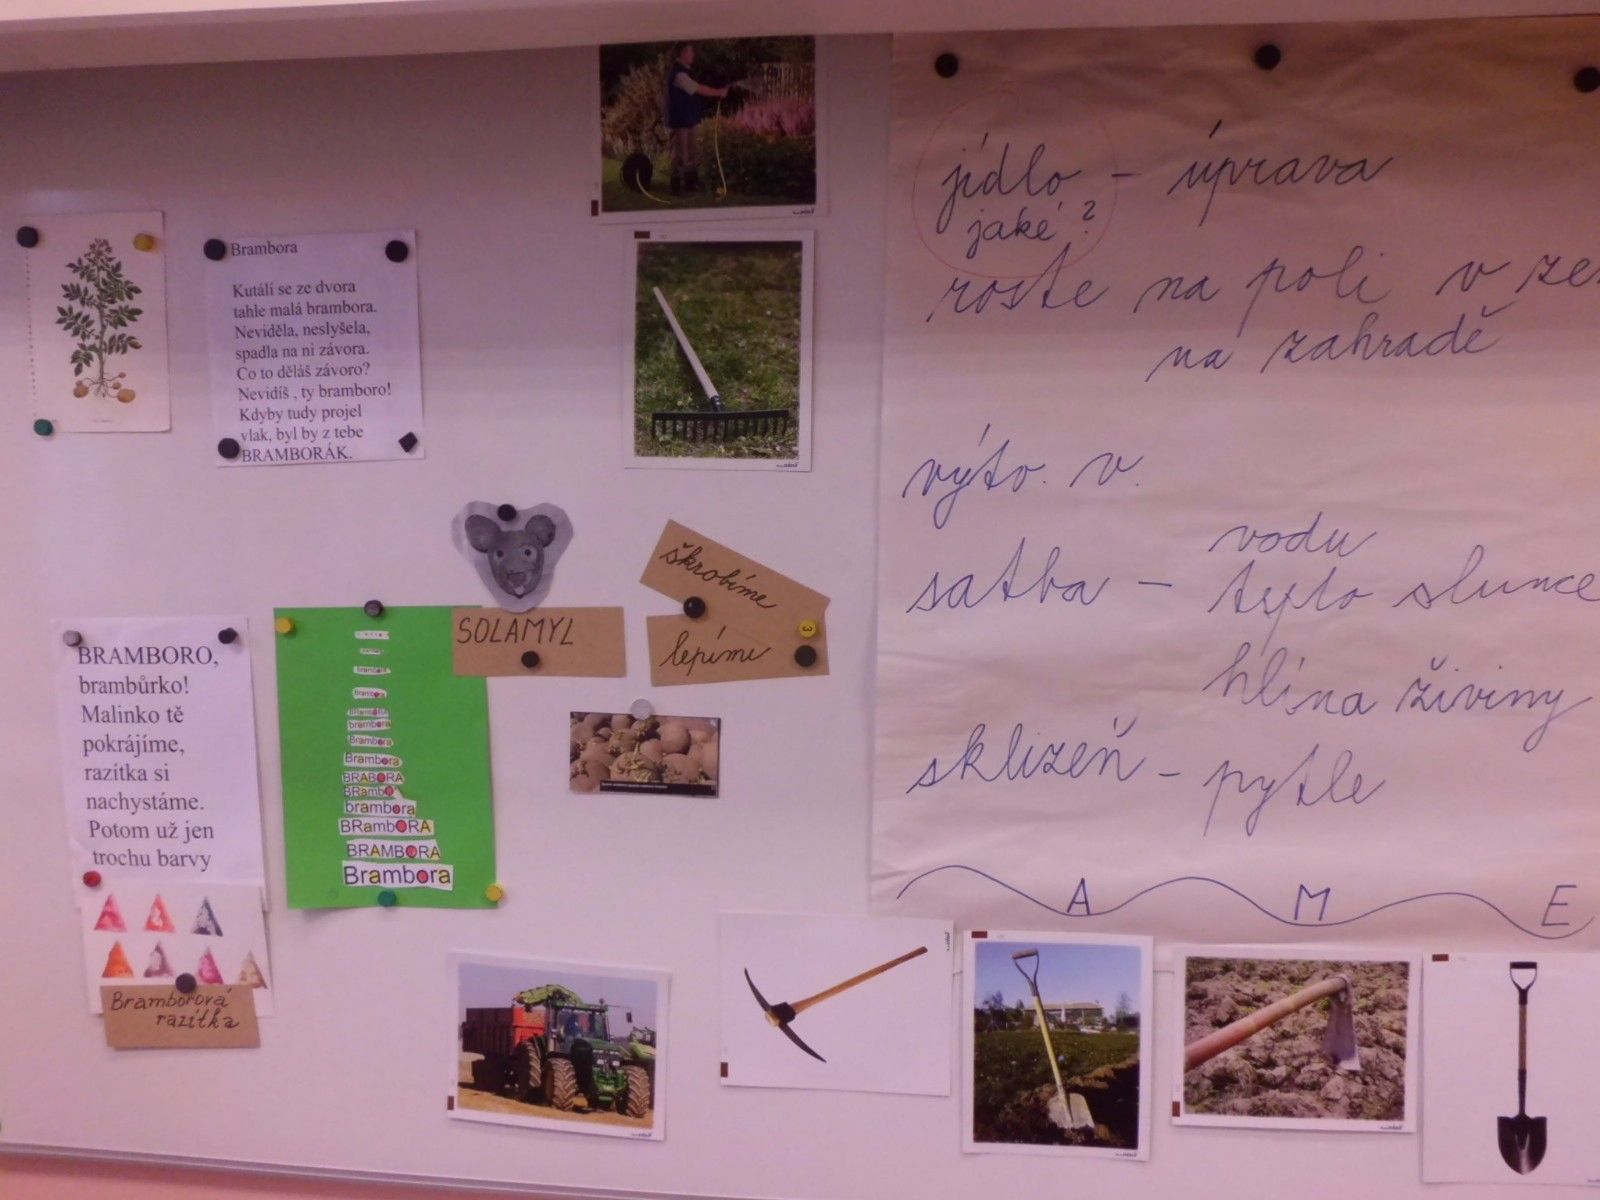 Brambora
Kutálí se ze dvora
tahle malá brambora.
Neviděla, neslyšela,
spadla na ni závora.
Co to děláš závoro?
Nevidíš , ty bramboro!
Kdyby tudy projel
vlak, byl by z tebe
BRAMBORÁK.
BRAMBORO,
brambůrko!
Malinko tě
pokrájíme,
razítka si
nachystáme.
Potom už jen
trochu barvy
Bramborová
razítka
Brambora
BRamBORA
brambora
Brambora
Brambora
BRABORA
brambora
BRambORA
BRAMBORA
Brambora
SOLAMYL
škrobíme
lepíme
3
jídlo - úprava
jaké?
roste na poli v ze
na zahradě
výto. v.
vodu
satba - teplo slunce
hlína živiny
sklizeň - pytle
A M E